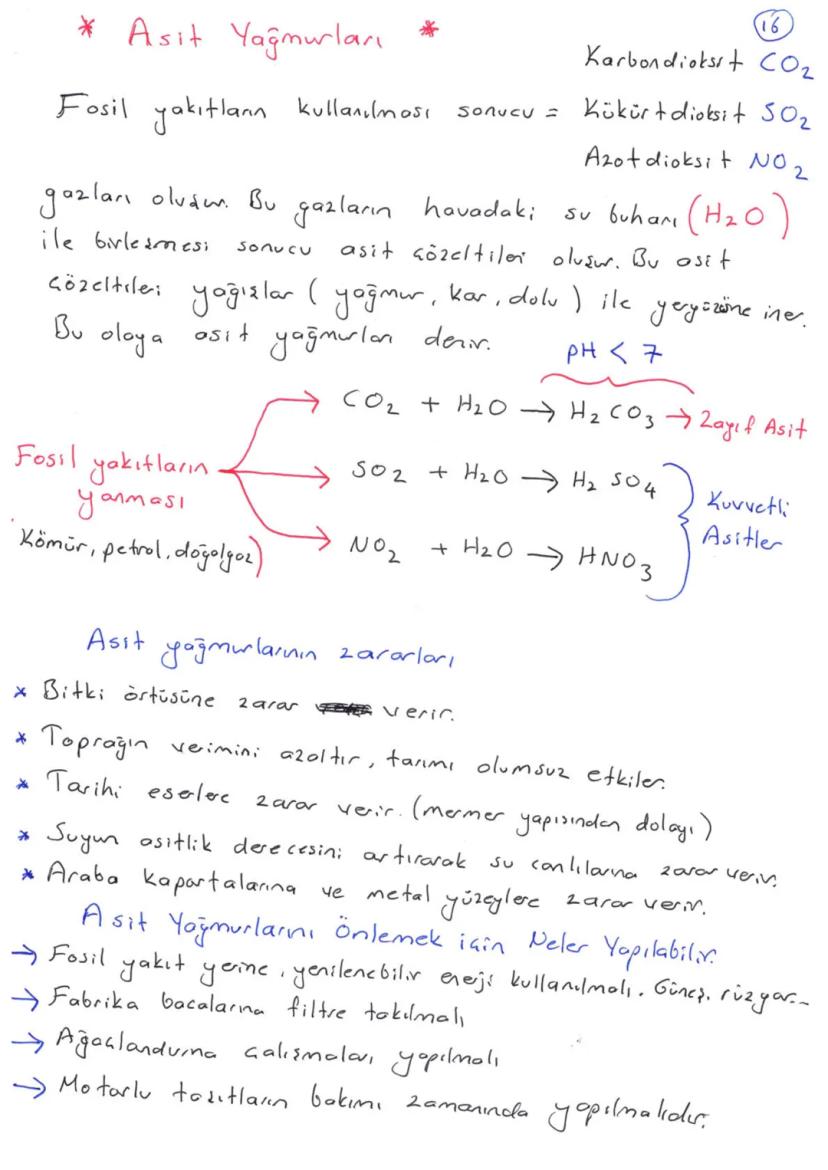 * Asit Yağmurları *
16
Karbondioksit CO2
Fosil yakıtların kullanılması sonucu = Kükürtdioksit SO2
Azotdioksit NO2
gazları oluşur. Bu gazların havadaki su buharı (H2O)
ile birleşmesi sonucu asit çözeltileri oluşur. Bu asit
çözeltileri yağışlar ( yağmur, kar, dolu ) ile yeryüzüne iner.
Bu olaya asit yağmurları denir.
pH < 7
CO2 + H2O → H2CO3 → Zayıf Asit
Fosil yakıtların
yanması
Kömür, petrol, doğalgaz)
SO2 + H2O → H2SO4
NO2 + H2O → HNO3
Kuvvetli
Asitler
Asit yağmurlarının zararları
* Bitki örtüsüne zarar verir.
* Toprağın verimini azaltır, tarımı olumsuz etkiler.
* Tarihi eserlere zarar verir. (mermer yapısından dolayı)
* Suyun asitlik derecesini artırarak su canlılarına zarar verir.
* Araba kaportalarına ve metal yüzeylere zarar verir.
Asit Yağmurlarını Önlemek için Neler Yapılabilir.
→ Fosil yakıt yerine, yenilenebilir enerji kullanılmalı. Güneş, rüzgar...
→ Fabrika bacalarına filtre takılmalı
→ Ağaçlandırma çalışmaları yapılmalı
→ Motorlu taşıtların bakımı zamanında yapılmalıdır.